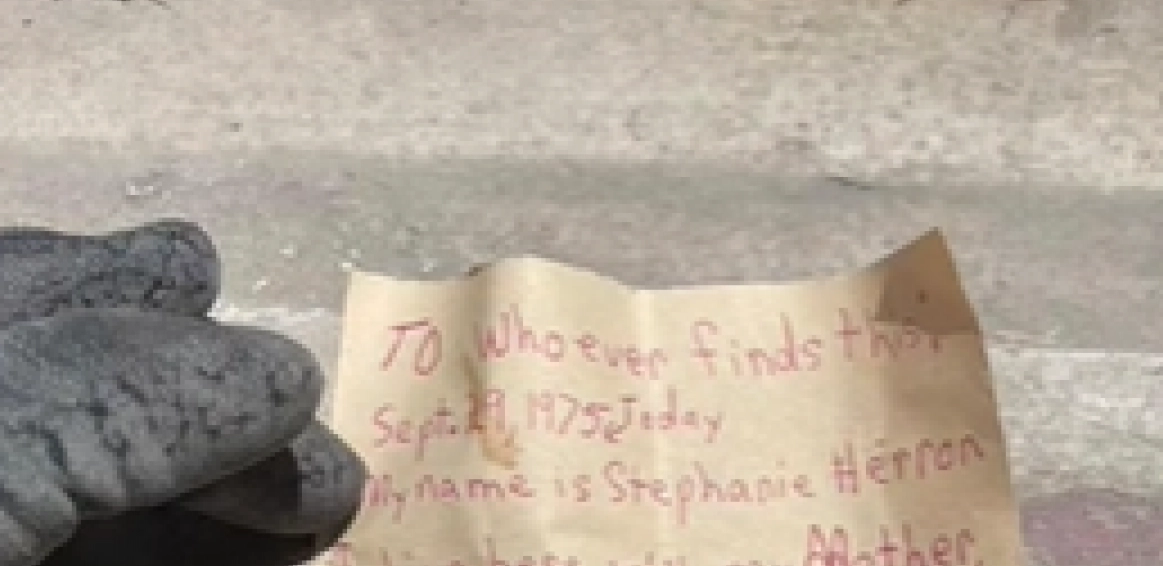 TO Whoever finds this.
Sept. 29, 1975, Today
My name is Stephanie Herron
here with my Mother,